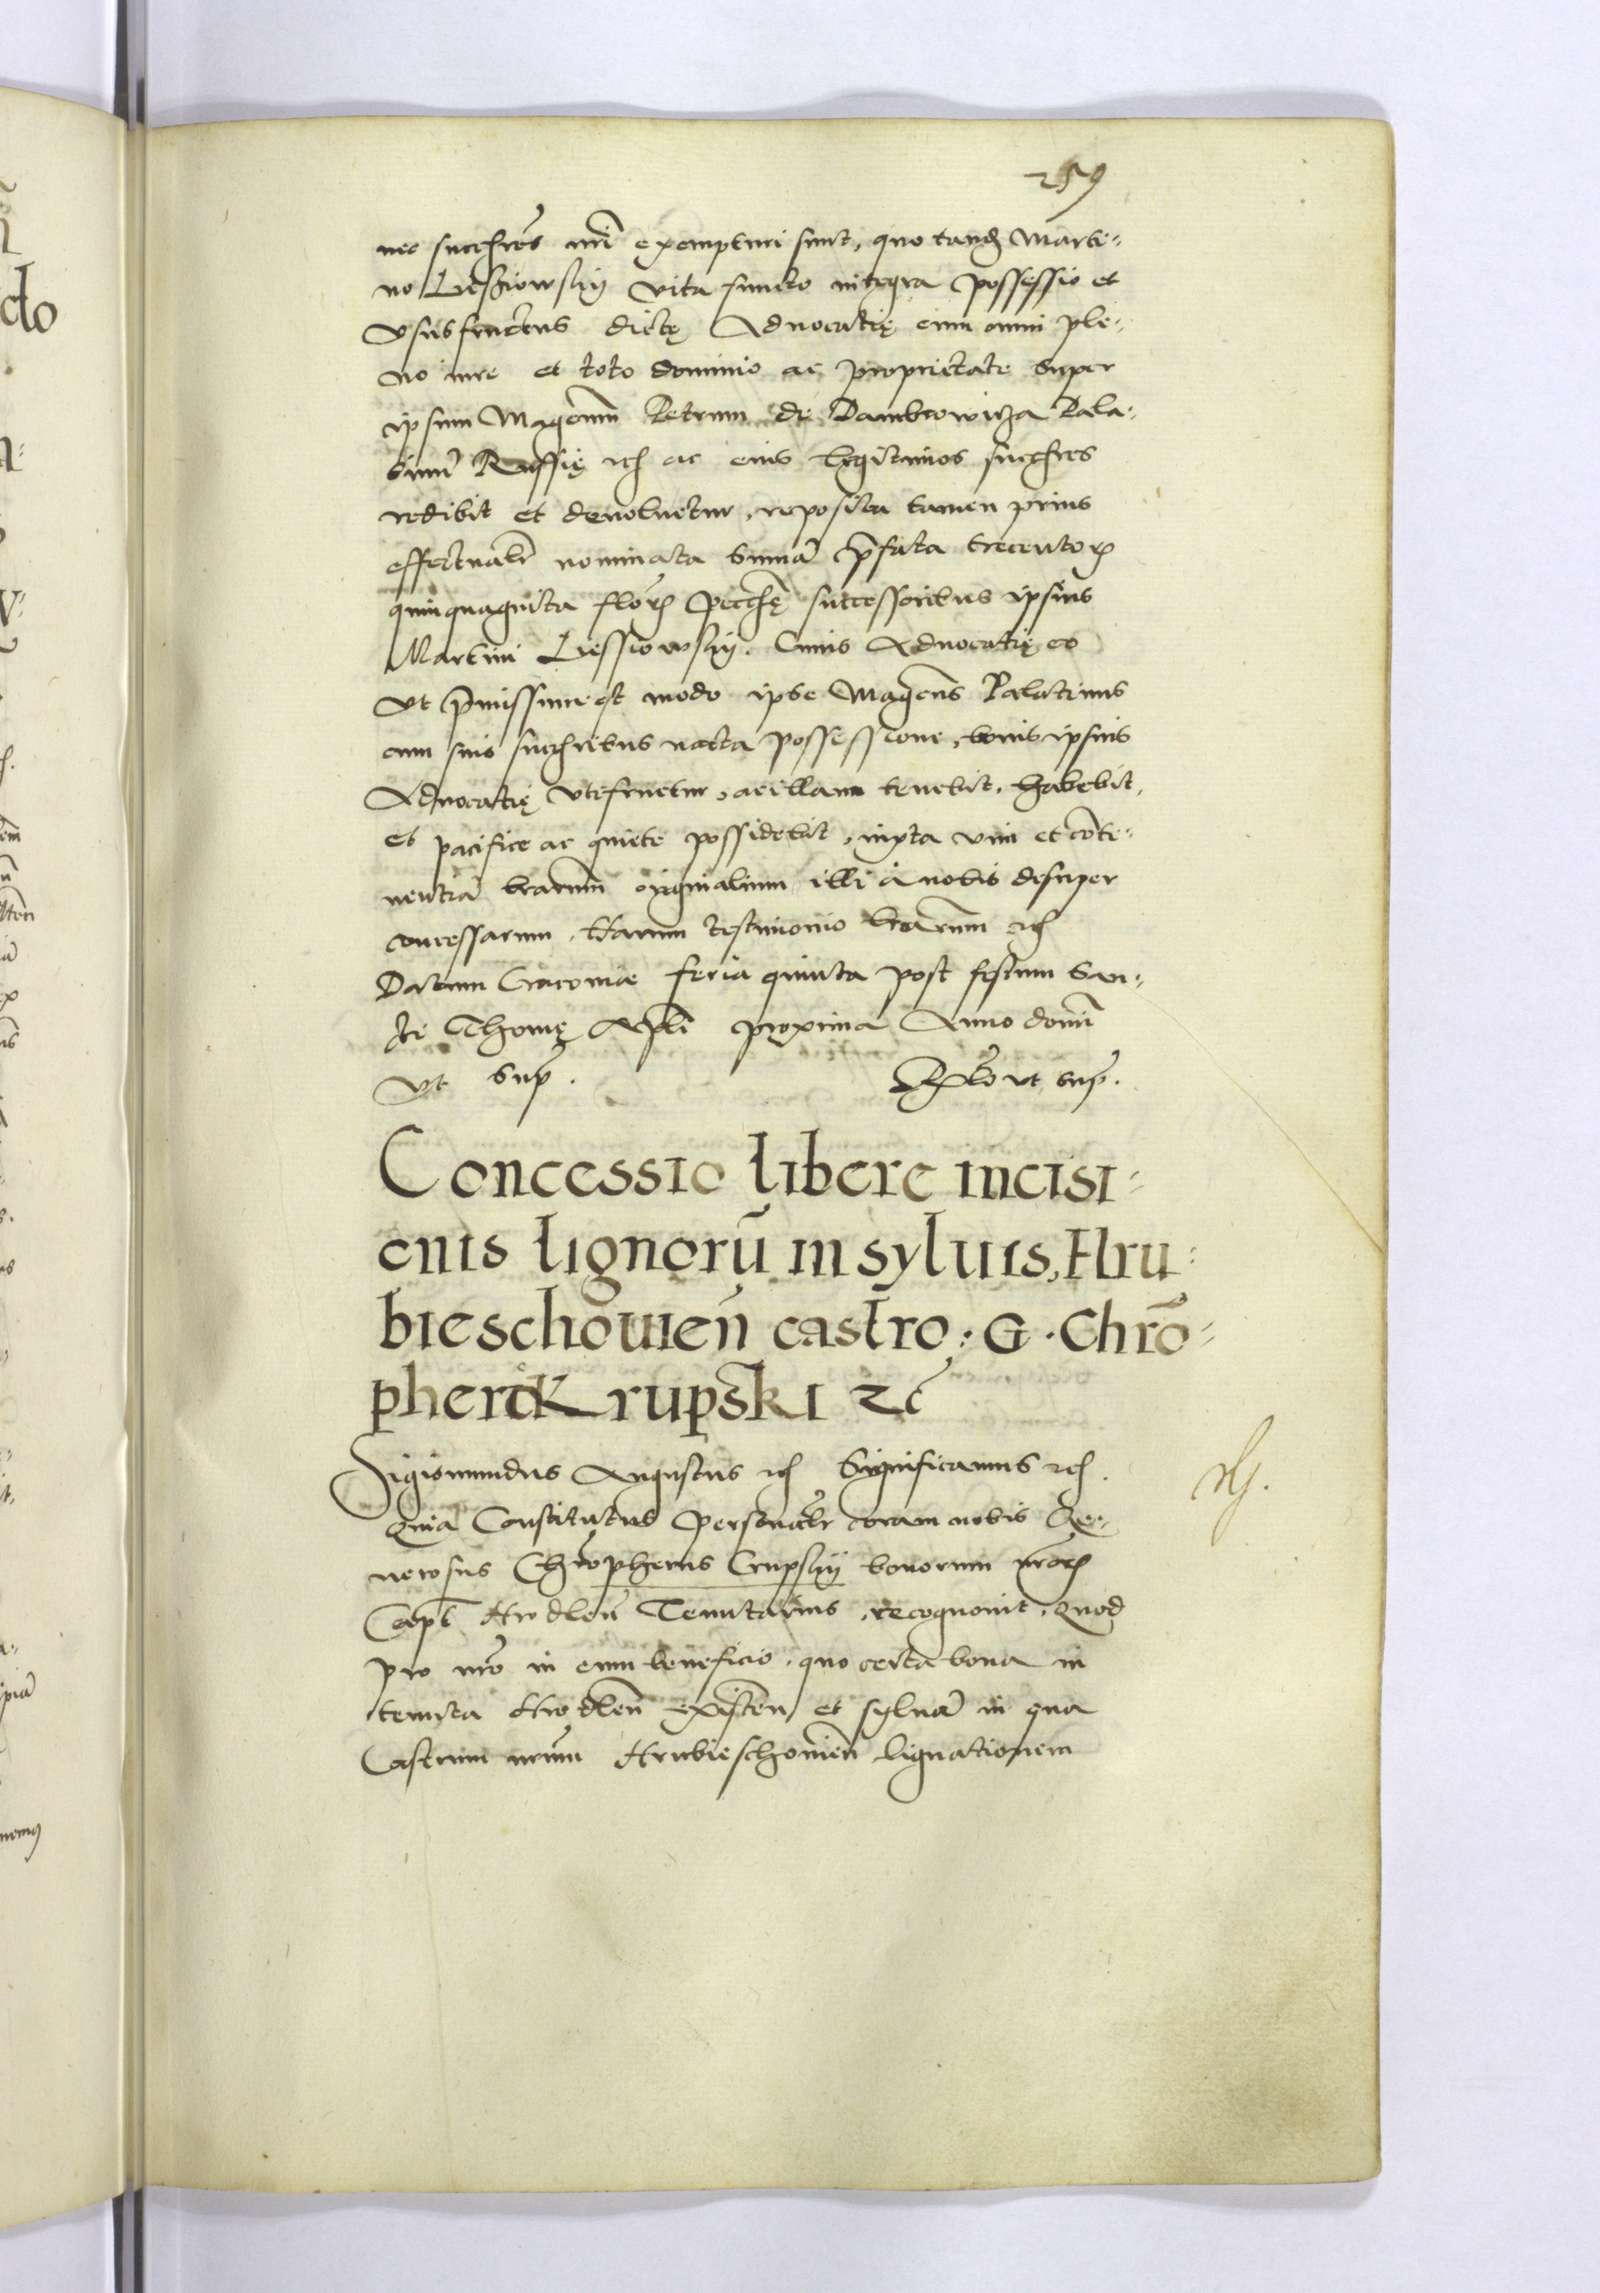 259
nec succẜres nr̃i exempturi sunt, quo tandẜ Marti-
no Liesziowskÿ vita functo integra possessio et
vsusfructus dictę Aduocatię cum omni ple-
no iure et toto dominio ac proprietate super
ipsum Magcum̃ Petrum de Dambrowicza Pala-
tinũ Russię etc ac eius legitimos succẜres
redibit et deuoluetur, reposita tamen prius
effectualr̃ nominata summa p̃fata trecentoꝝ
quinquaginta floꝝ pecc̃ę successoribus ipsius
Martini Liessiowskÿ. Cuius Aduocatię eo
vt p̃missum est modo ipse Magcus̃ Palatinus
cum suis succẜribus nacta possessione, bonis ipsius
Aduocatię vtefruetur, ac illam tenebit, habebit,
et pacifice ac quiete possidebit, iuxta vim et cõte-
nentiã l̃rarum originalium illi à nobis desuper
concessarum. Harum testimonio l̃rarum etc
Datum Cracoviae feria quinta post festum San-
cti Thomę Apl̃i proxima Anno domi
vt sup̃. Rlõ vt sup̃.
Concessio libere incisi-
onis lignorũ in syluis, Hru-
bieschouień castro: G. Chrõ-
phero Krupski etc̃
Sigismundus Augustus etc Significamus etc.
Quia Constitutus personalr̃ coram nobis Ge-
nerosus Chrõpherus Crupskÿ bonorum nr̃oꝝ
Capt̃ Hrodleñ Tenutarius, recognouit, Quod
pro nr̃o in eum beneficio, quo certa bona in
tenuta Hrodleñ existeñ et syluã in qua
Castrum nr̃um Hrubieschouień lignationem